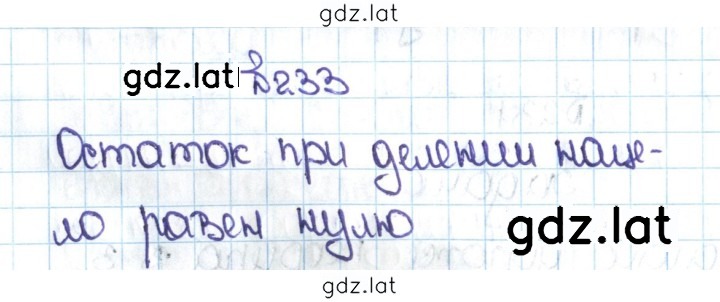 gdz.lat
gdz.lat №233
Остаток при делении наце-
ло равен нулю
gdz.lat
gdz.lat